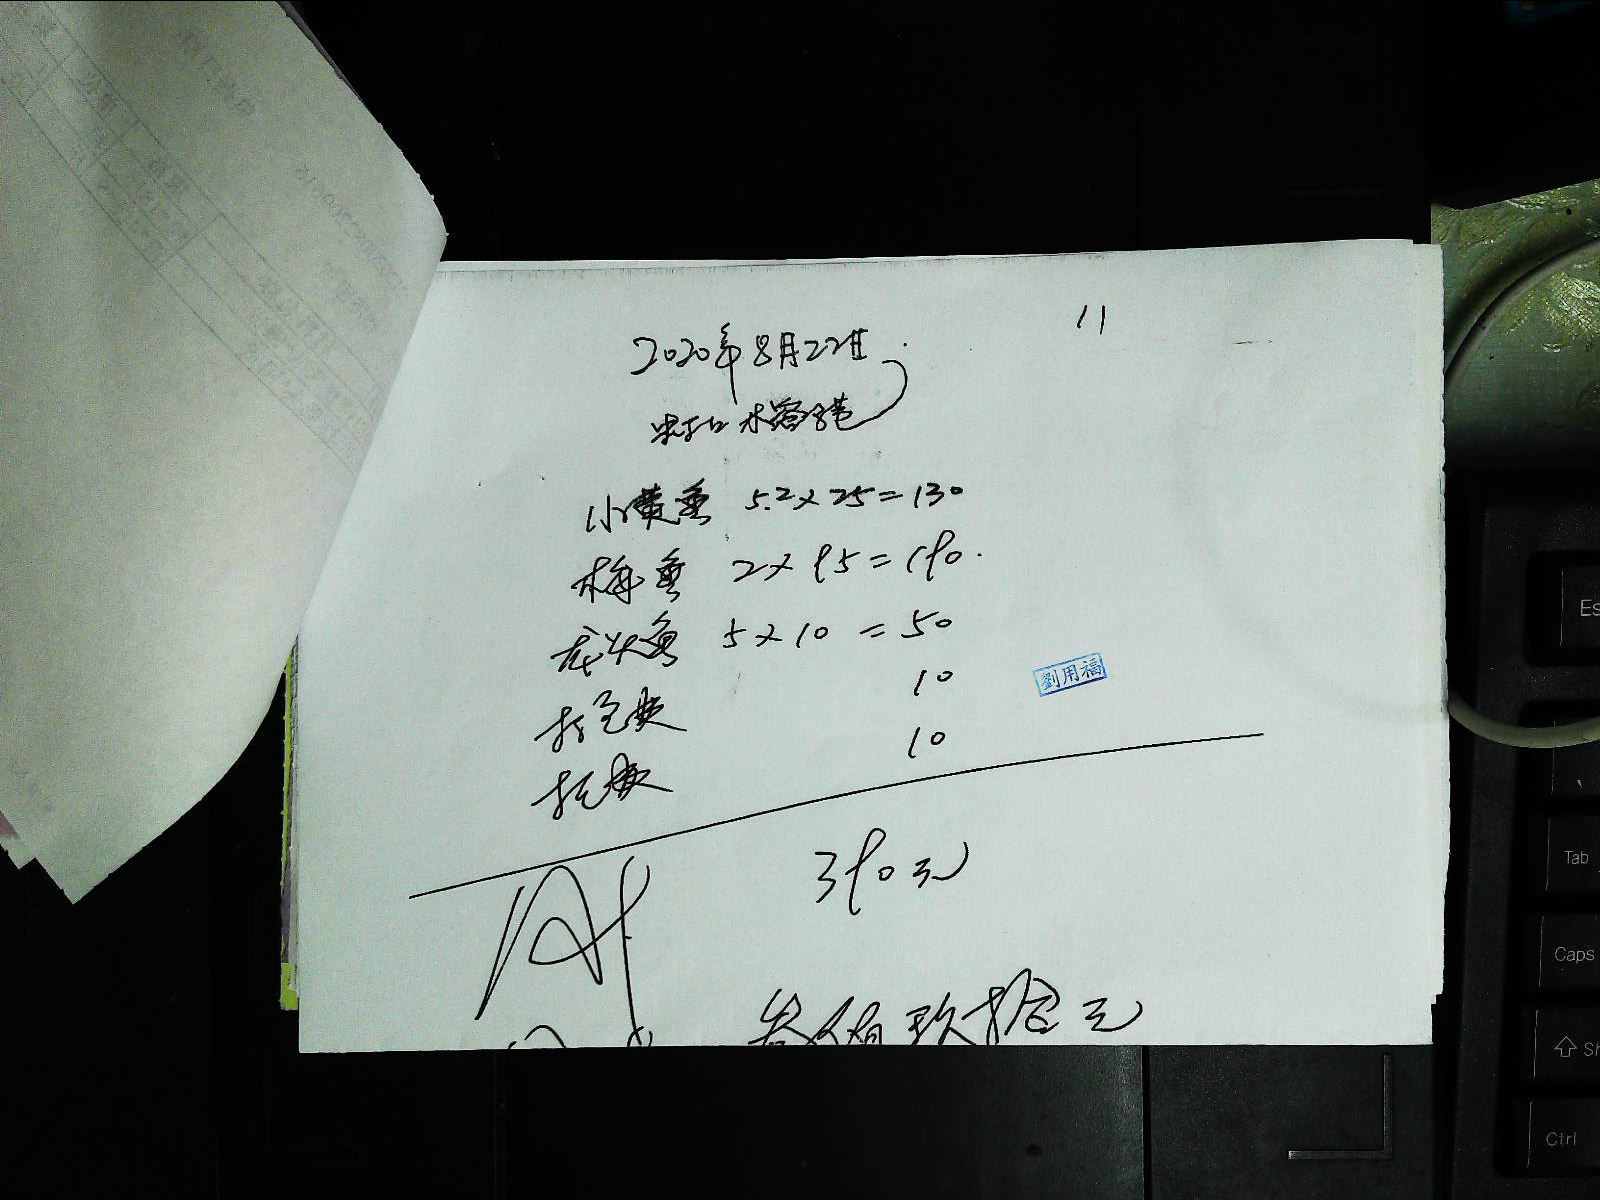 11
2020年8月22日
小黄鱼 5.2×25=130
梅鱼 2×95=190.
龙头鱼 5×10=50
打包费 10
10
劉用福
390元
叁佰玖拾元
Es
Tab
Caps
Sh
Ctrl